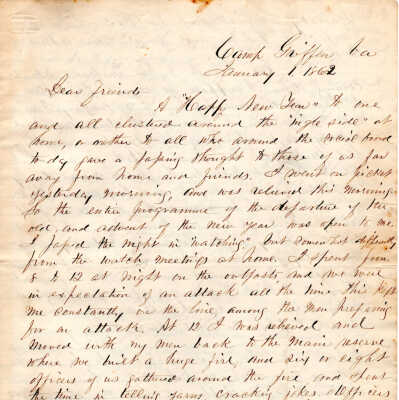 Camp Griffin Va
January 1, 1862
Dear friends
A "Happy New Year" to one
and all clustered around the "ingle side" at
home, or rather to all who around the social board
to day gave a passing thought to those of us far
away from home and friends. I went on picket
yesterday morning, and was relieved this morning
So the entire programme of the departure of the
old, and advent of the new year was open to me.
I passed the night in "watching", but somewhat differently
from the watch meetings at home. I spent from
8 to 12 at night on the outposts and we were
in expectation of an attack all the time this kept
me constantly on the line, among the men preparing
for an attack. At 12 I was relieved and
moved with my men back to the main reserve
where we built a huge fire, and six or eight
officers of us gathered around the fire and spent
the time in telling yarns, cracking jokes. Officers